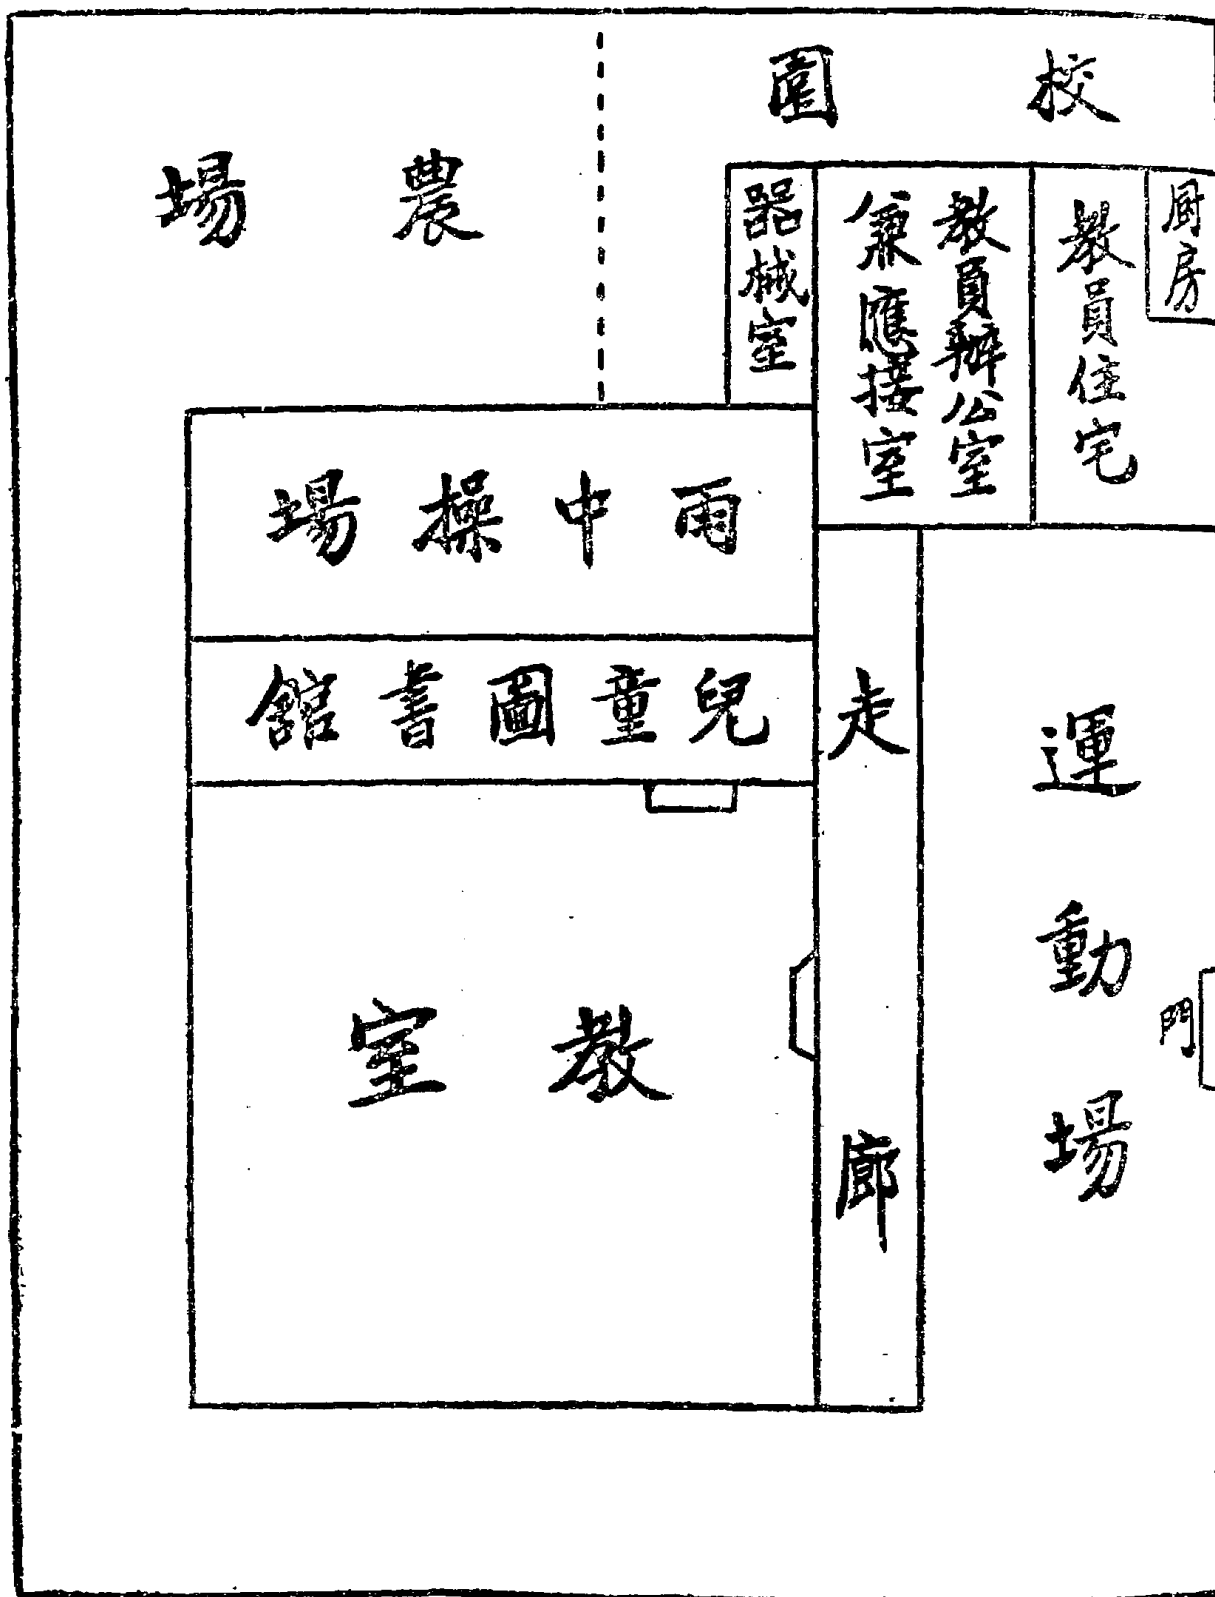 校園
農場
厨房
教員住宅
教員辦公室
兼應接室
器械室
雨中操場
兒童圖書館
走廊
運動場
門
教室